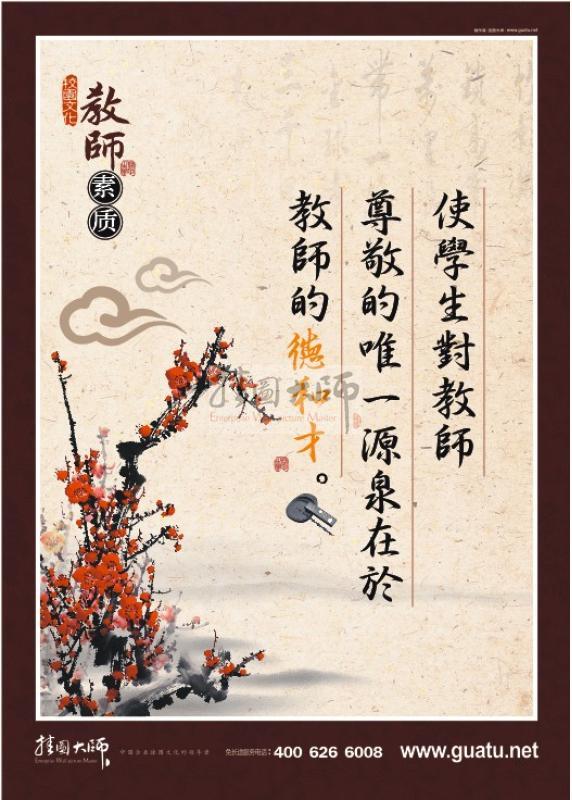 www.guatu.net
校园文化
教師
素质
使學生對教師
尊敬的唯一源泉在於
教師的德和才。
挂圖大師
Enterprise Wall picture Master
挂圖大師
Enterprise Wall picture Master
免长途服务电话：400 626 6008
www.guatu.net